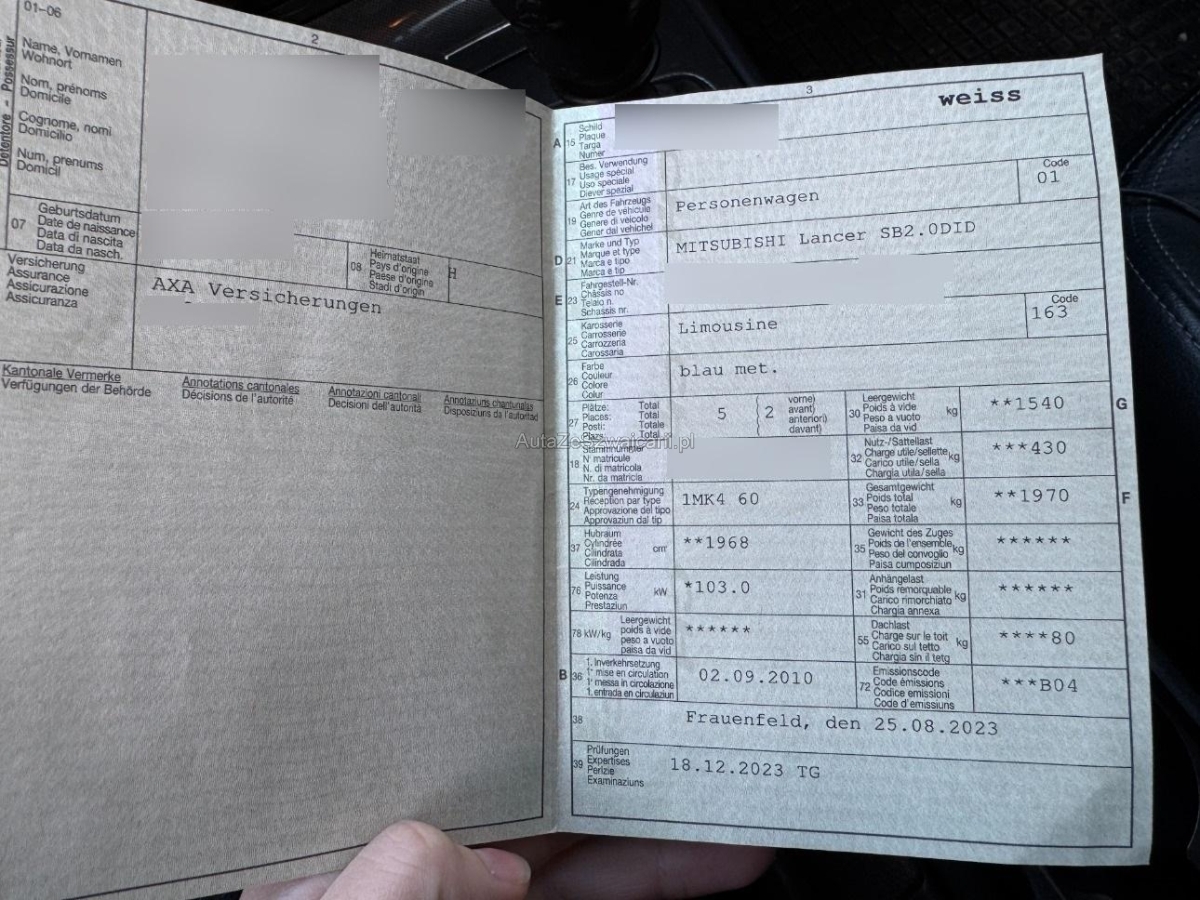 01–06
2
Detentore - Possessur
Name, Vornamen
Wohnort
Nom, prénoms
Domicile
Cognome, nomi
Domicilio
Num, prenums
Domicil
07
Geburtsdatum
Date de naissance
Data di nascita
Data da nasch.
08
Heimatstaat
Pays d'origine
Paese d'origine
Stadi d'origin
Versicherung
Assurance
Assicurazione
Assicuranza
AXA Versicherungen
Kantonale Vermerke
Verfügungen der Behörde
Annotations cantonales
Décisions de l'autorité
Annotazioni cantonali
Decisioni dell'autorità
Annotaziuns chantunalas
Disposiziuns da l'autoritad
3
weiss
A 15
Schild
Plaque
Targa
Numer
17
Bes. Verwendung
Usage spécial
Uso speciale
Diever spezial
Code
01
19
Art des Fahrzeugs
Genre de véhicule
Genere di veicolo
Gener dal vehichel
Personenwagen
D 21
Marke und Typ
Marque et type
Marca e tipo
Marca e tip
MITSUBISHI Lancer SB2.0DID
E 23
Fahrgestell-Nr.
Châssis no
Telaio n.
Schassis nr.
25
Karosserie
Carrosserie
Carrozzeria
Carossaria
Limousine
Code
163
26
Farbe
Couleur
Colore
Colur
blau met.
27
Plätze: Total
Places: Total
Posti: Totale
Plazs Total
5
2
vorne)
avant)
anteriori)
davant)
30
Leergewicht
Poids à vide
Peso a vuoto
Paisa da vid
kg
**1540
G
18
Stammnummer
N° matricule
N. di matricola
Nr. da matricla
32
Nutz-/Sattellast
Charge utile/sellette
Carico utile/sella
Chargia utila/sella
kg
***430
24
Typengenehmigung
Réception par type
Approvazione del tipo
Approvaziun dal tip
1MK4 60
33
Gesamtgewicht
Poids total
Peso totale
Paisa totala
kg
**1970
F
37
Hubraum
Cylindrée
Cilindrata
Cilindrada
cm³
**1968
35
Gewicht des Zuges
Poids de l'ensemble
Peso del convoglio
Paisa cumposiziun
kg
******
76
Leistung
Puissance
Potenza
Prestaziun
kW
*103.0
31
Anhängelast
Poids remorquable
Carico rimorchiato
Chargia annexa
kg
******
78 kW/kg
Leergewicht
poids à vide
peso a vuoto
paisa da vid
******
55
Dachlast
Charge sur le toit
Carico sul tetto
Chargia sin il tetg
kg
****80
B 36
1. Inverkehrsetzung
1re mise en circulation
1a messa in circolazione
1. entrada en circulaziun
02.09.2010
72
Emissionscode
Code émissions
Codice emissioni
Code d'emissiuns
***B04
38
Frauenfeld, den 25.08.2023
39
Prüfungen
Expertises
Perizie
Examinaziuns
18.12.2023 TG
AutaZeSzwajcarii.pl